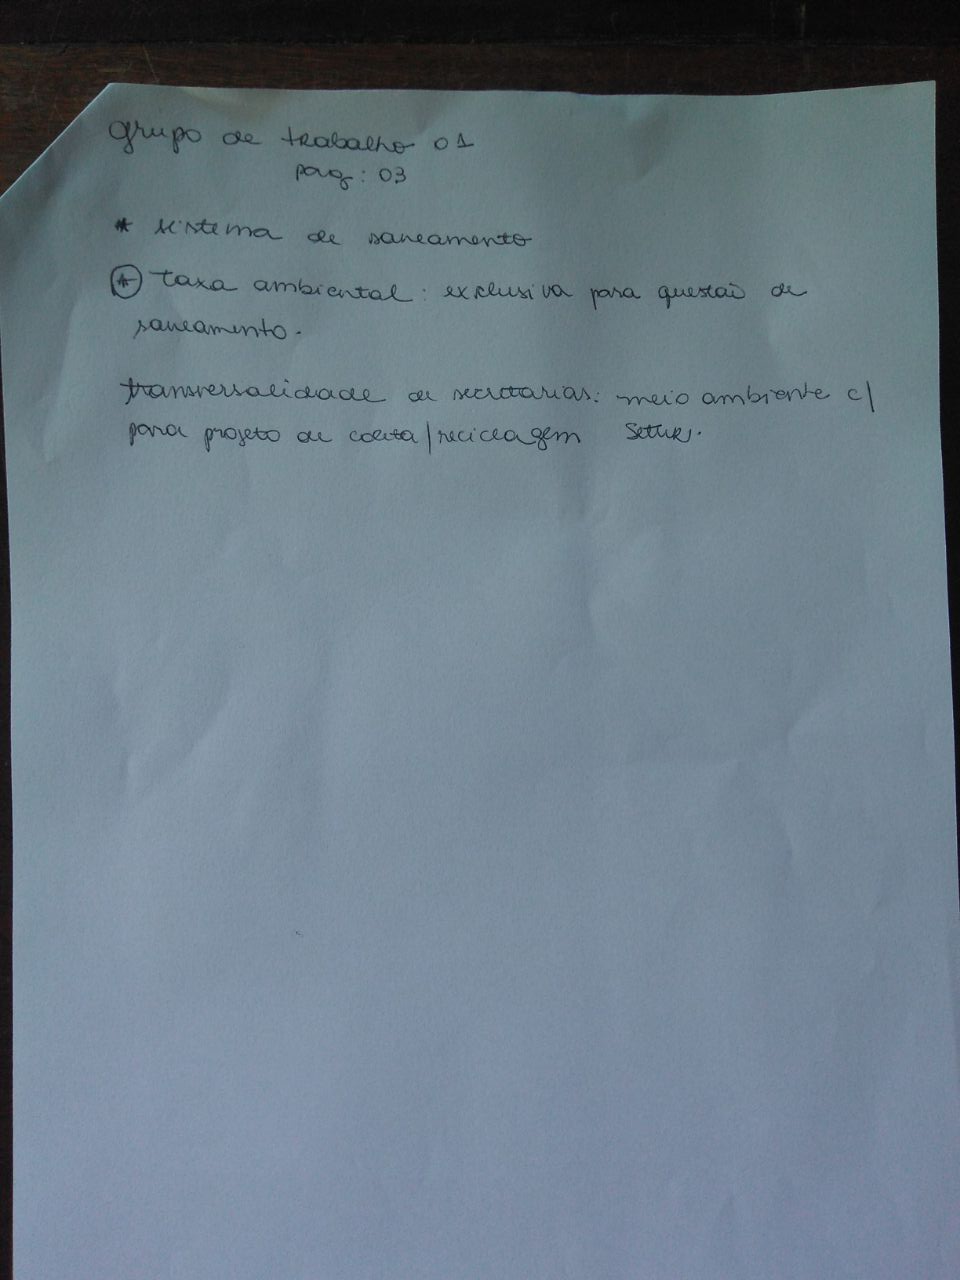 grupo de trabalho 01
pag: 03
* sistema de saneamento
* taxa ambiental: exclusiva para questão de
saneamento.
transversalidade de secretarias: meio ambiente c/
para projeto de coleta/reciclagem Setur.